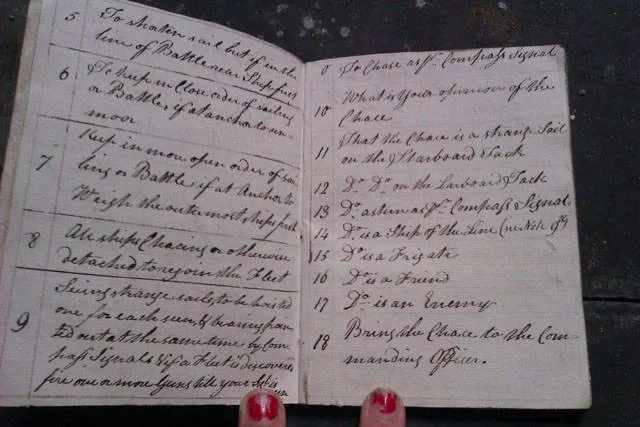 5 To shorten sail but if in the
line of Battle near Ships first
6 To keep in Close order of sailing
or Battle, if at anchor to un-
moor
7 Keep in more open order of sai-
ling or Battle, if at Anchor to
Weigh the outermost ships first
8 All ships Chacing or otherwise
detached to rejoin the Fleet
9 Seeing strange sails to be hoisted
one for each seen, & bearing poin-
ted out at the same time by Com-
pass Signals & if a Fleet is discovered
fire one or more Guns till your
0 To Chase as Pr. Compass Signal
10 What is your opinion of the
Chace
11 That the Chace is a strange Sail
on the Starboard Tack
12 Do. Do. on the Larboard Tack
13 Do. astern as Pr. Compass Signal
14 Do. is a Ship of the Line
15 Do. is a Frigate
16 Do. is a Friend
17 Do. is an Enemy
18 Bring the Chace to the Com-
manding Officer.